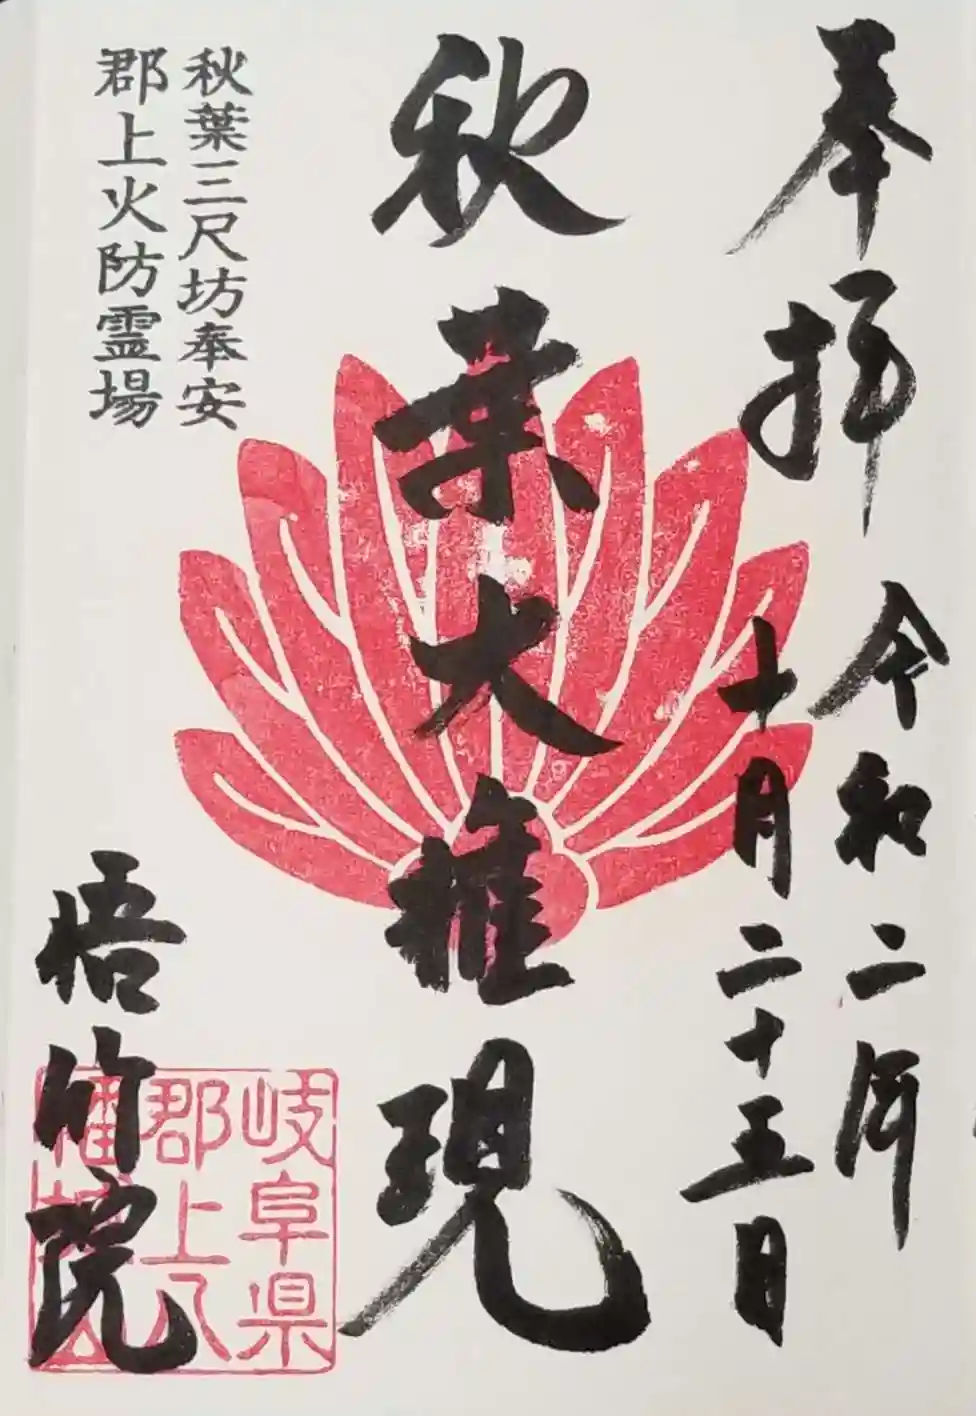 奉拝
令和二年
十月二十五日
秋葉大権現
秋葉三尺坊奉安
郡上火防霊場
悟竹院
岐阜県
郡上八
幡